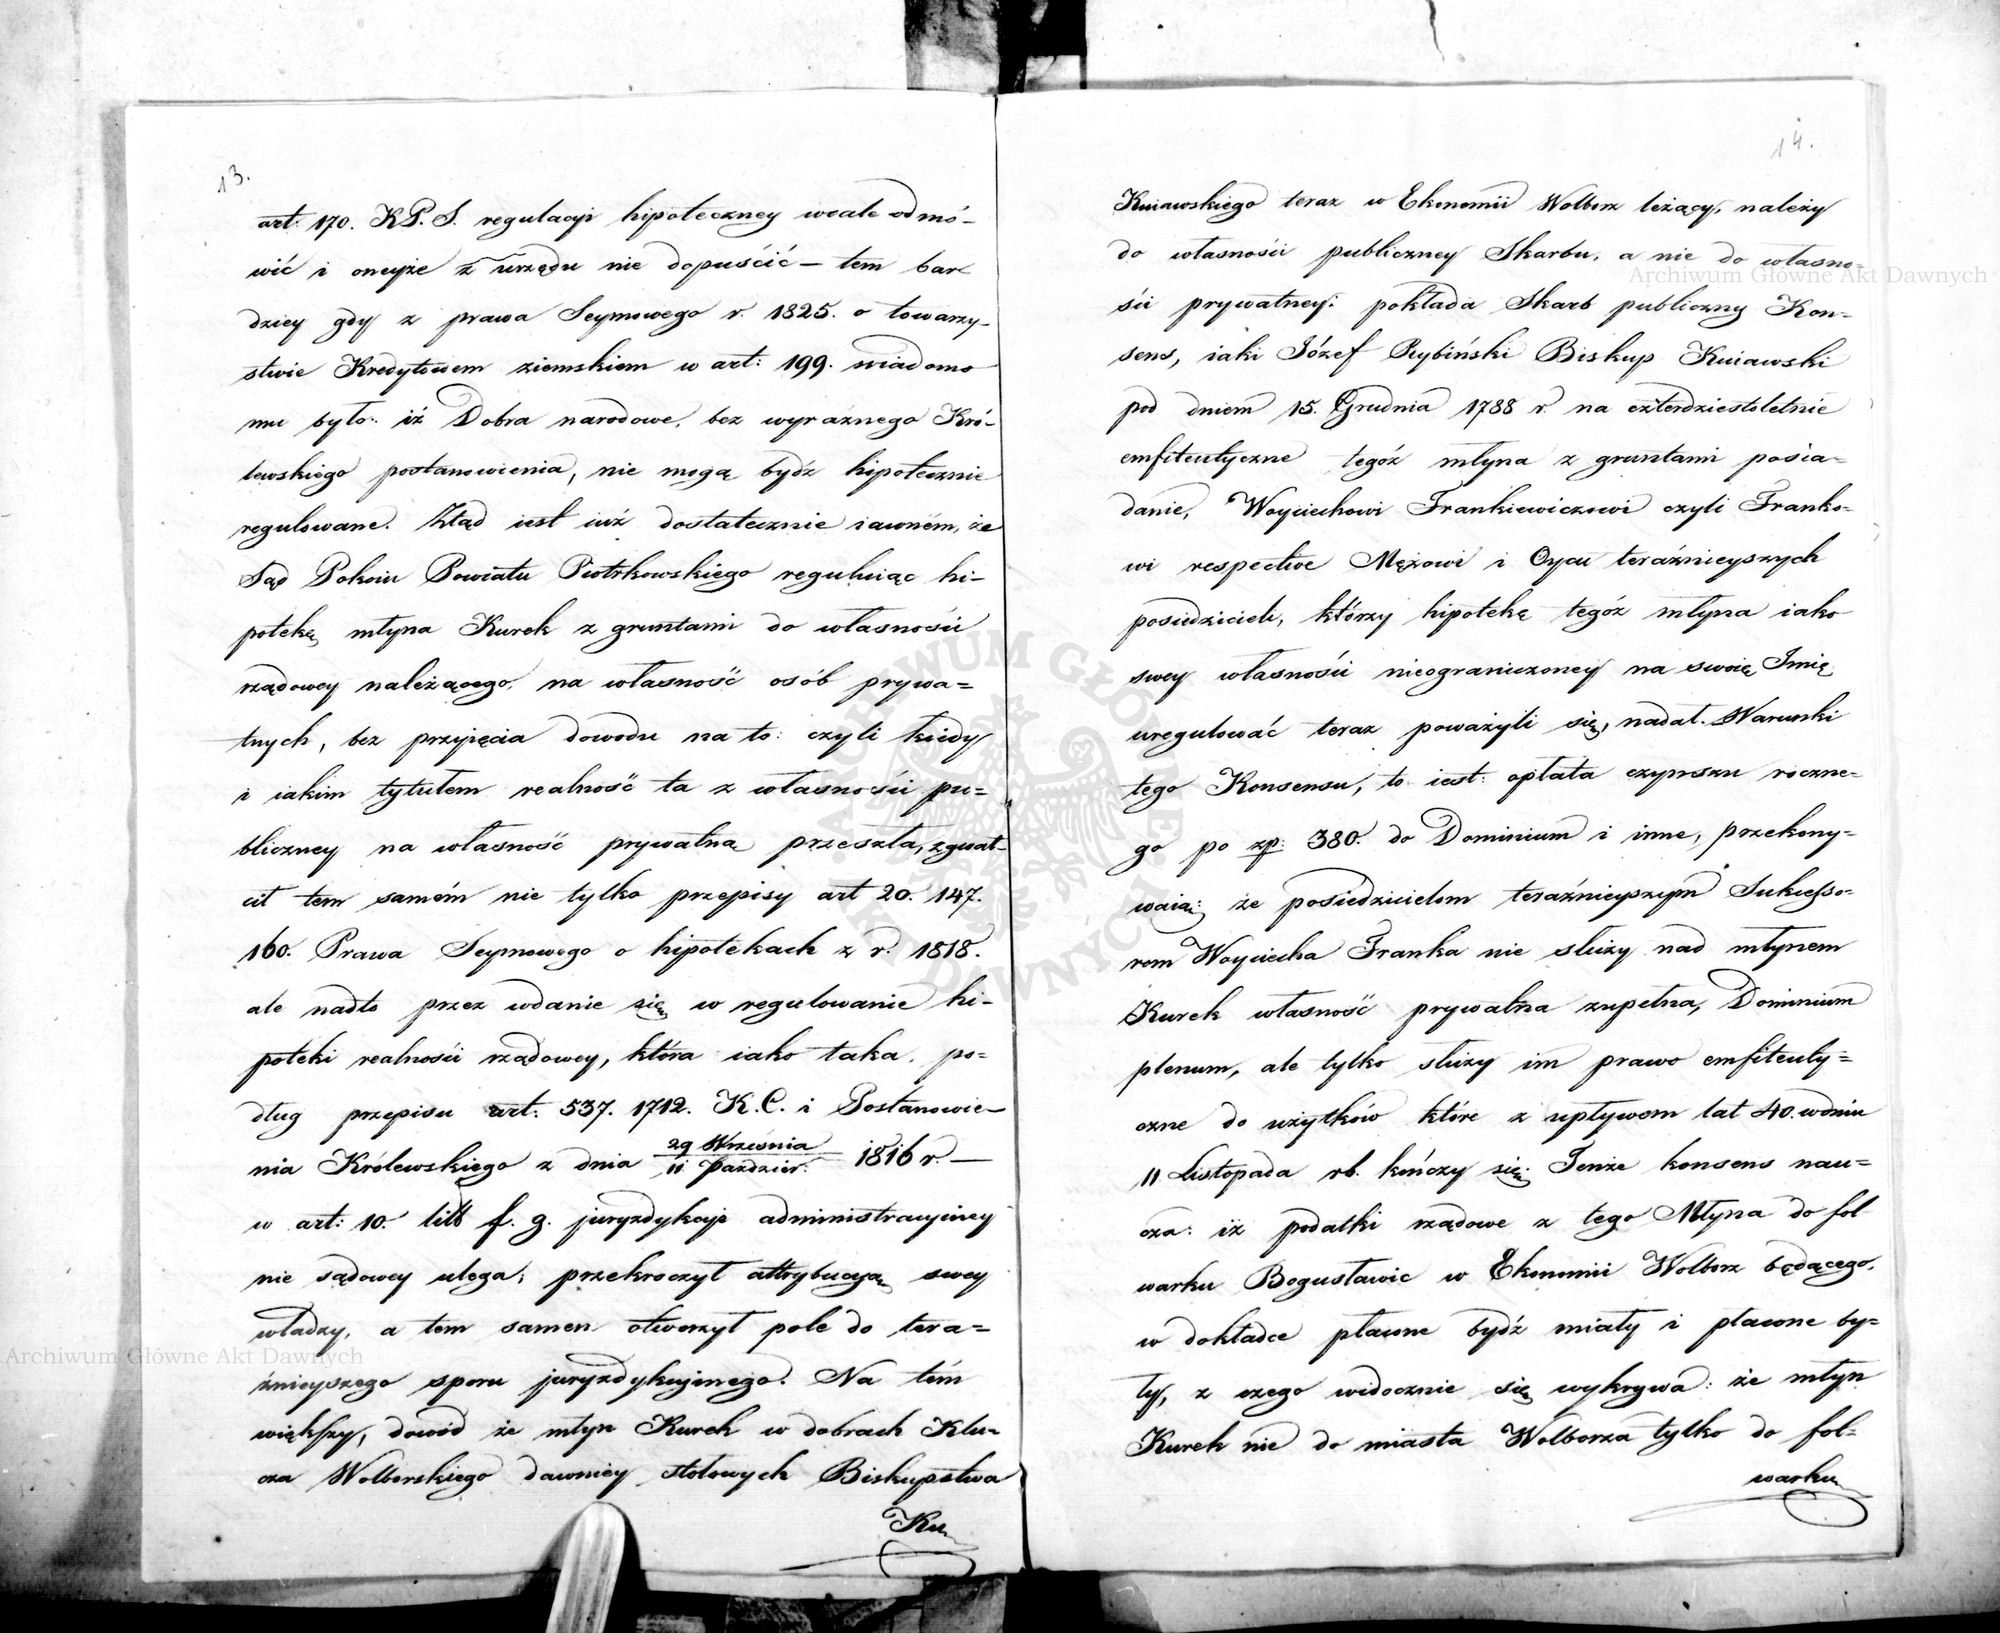 13.
art: 170. K.P.S. regulacyi hipoteczney wcale odmó-
wić i oneyże z urzędu nie dopuścić – tem bar
dziey gdy z prawa Seymowego r. 1825. o towarzy-
stwie Kredytowem ziemskiem w art: 199. wiadomo
mu było: iż Dobra narodowe, bez wyraźnego Kró-
lewskiego postanowienia, nie mogą bydź hipotecznie
regulowane. Ztąd iest iuż dostatecznie iawném, że
Sąd Pokoiu Powiatu Piotrkowskiego reguluiąc hi-
potekę młyna Kurek z gruntami do własności
rządowey należącego, na własność osób prywa=
tnych, bez przyięcia dowodu na to: czyli kiedy
i iakim tytułem realność ta z własności pu=
bliczney na własność prywatną przeszła, zgwał-
cił tem samém nie tylko przepisy art 20. 147.
160. Prawa Seymowego o hipotekach z r. 1818.
ale nadto przez wdanie się w regulowanie hi-
poteki realności rządowey, która iako taka, po=
dług przepisu art: 537. 1712. K.C. i Postanowie-
nia Królewskiego z dnia 29 Września / 11 Paździer: 1816 r. —
w art: 10. litt f. g. juryzdykcyi administracyiney
nie sądowey ulega; przekroczył attrybucyą swey
władzy, a tem samem otworzył pole do tera=
źnieyszego sporu juryzdykcyinego. Na tém
większy, dowód że młyn Kurek w dobrach Klu-
cza Wolborskiego dawniey stołowych Biskupstwa
Ku
14.
Kuiawskiego teraz w Ekonomii Wolborz leżący, należy
do własności publiczney Skarbu, a nie do własno-
ści prywatney: pokłada Skarb publiczny Kon=
sens, iaki Józef Rybiński Biskup Kuiawski
pod dniem 15. Grudnia 1788 r. na czterdziestoletnie
emfiteutyczne tegóż młyna z gruntami posia=
danie, Woyciechowi Frankiewiczowi czyli Franko-
wi respective Mężowi i Oycu teraźnieyszych
posiedzicieli, którzy hipotekę tegóż młyna iako
swey własności nieograniczoney na swoię Imię
uregulować teraz poważyli się, nadał. Warunki
tego Konsensu, to iest: opłata czynszu roczne-
go po zp. 380. do Dominium i inne, przekony-
waią: że posiedzicielom teraźnieyszym Sukcesso-
rom Woyciecha Franka nie służy nad młynem
Kurek własność prywatna zupełna, Dominium
plenum, ale tylko służy im prawo emfiteuty=
czne do użytków które z upływem lat 40. w dniu
11 Listopada rb. kończy się. Tenże konsens nau=
cza: iż podatki rządowe z tego Młyna do fol
warku Bogusławic w Ekonomii Wolborz będącego,
w dokładce płacone bydź miały i płacone by=
ły, z czego widocznie się wykrywa: że młyn
Kurek nie do miasta Wolborza tylko do fol=
warku
Archiwum Główne Akt Dawnych
Archiwum Główne Akt Dawnych
ARCHIWUM GŁÓWNE AKT DAWNYCH